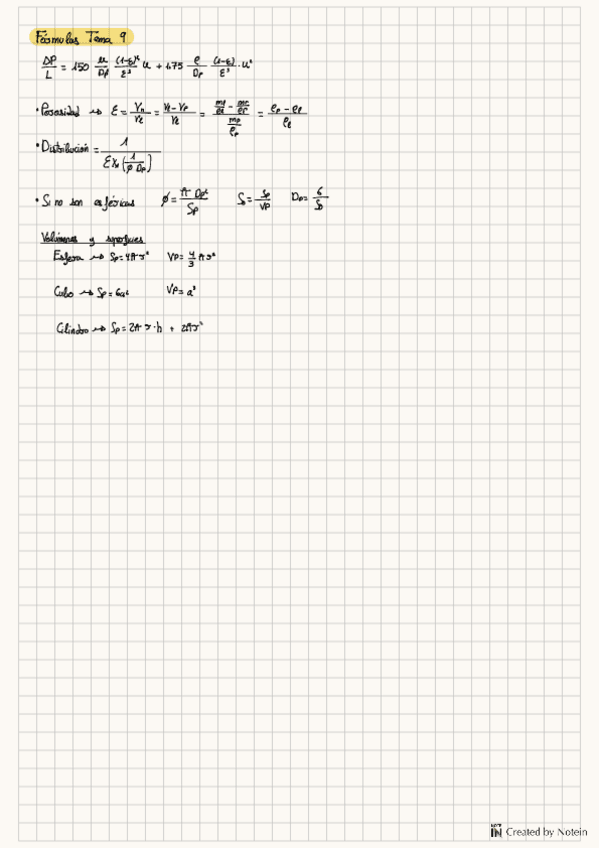 Fórmulas Tema 9
ΔP/L = 150 μ/Dp² (1-ε)²/ε³ u + 1.75 ρ/Dp (1-ε)/ε³ · u²
• Porosidad → ε = Vh/Vt = (Vt - Vp)/Vt = = (ρp - ρl)/ρp
• Distribución = 1/(Σxi (1/(φ Dp)))
• Si no son esféricas φ = π Dp²/Sp S0 = Sp/Vp Dp = 6/S0
Volúmenes y superficies
Esfera → Sp = 4πr² Vp = 4/3 π r³
Cubo → Sp = 6a² Vp = a³
Cilindro → Sp = 2π r·h + 2πr²
NOTE IN Created by Notein